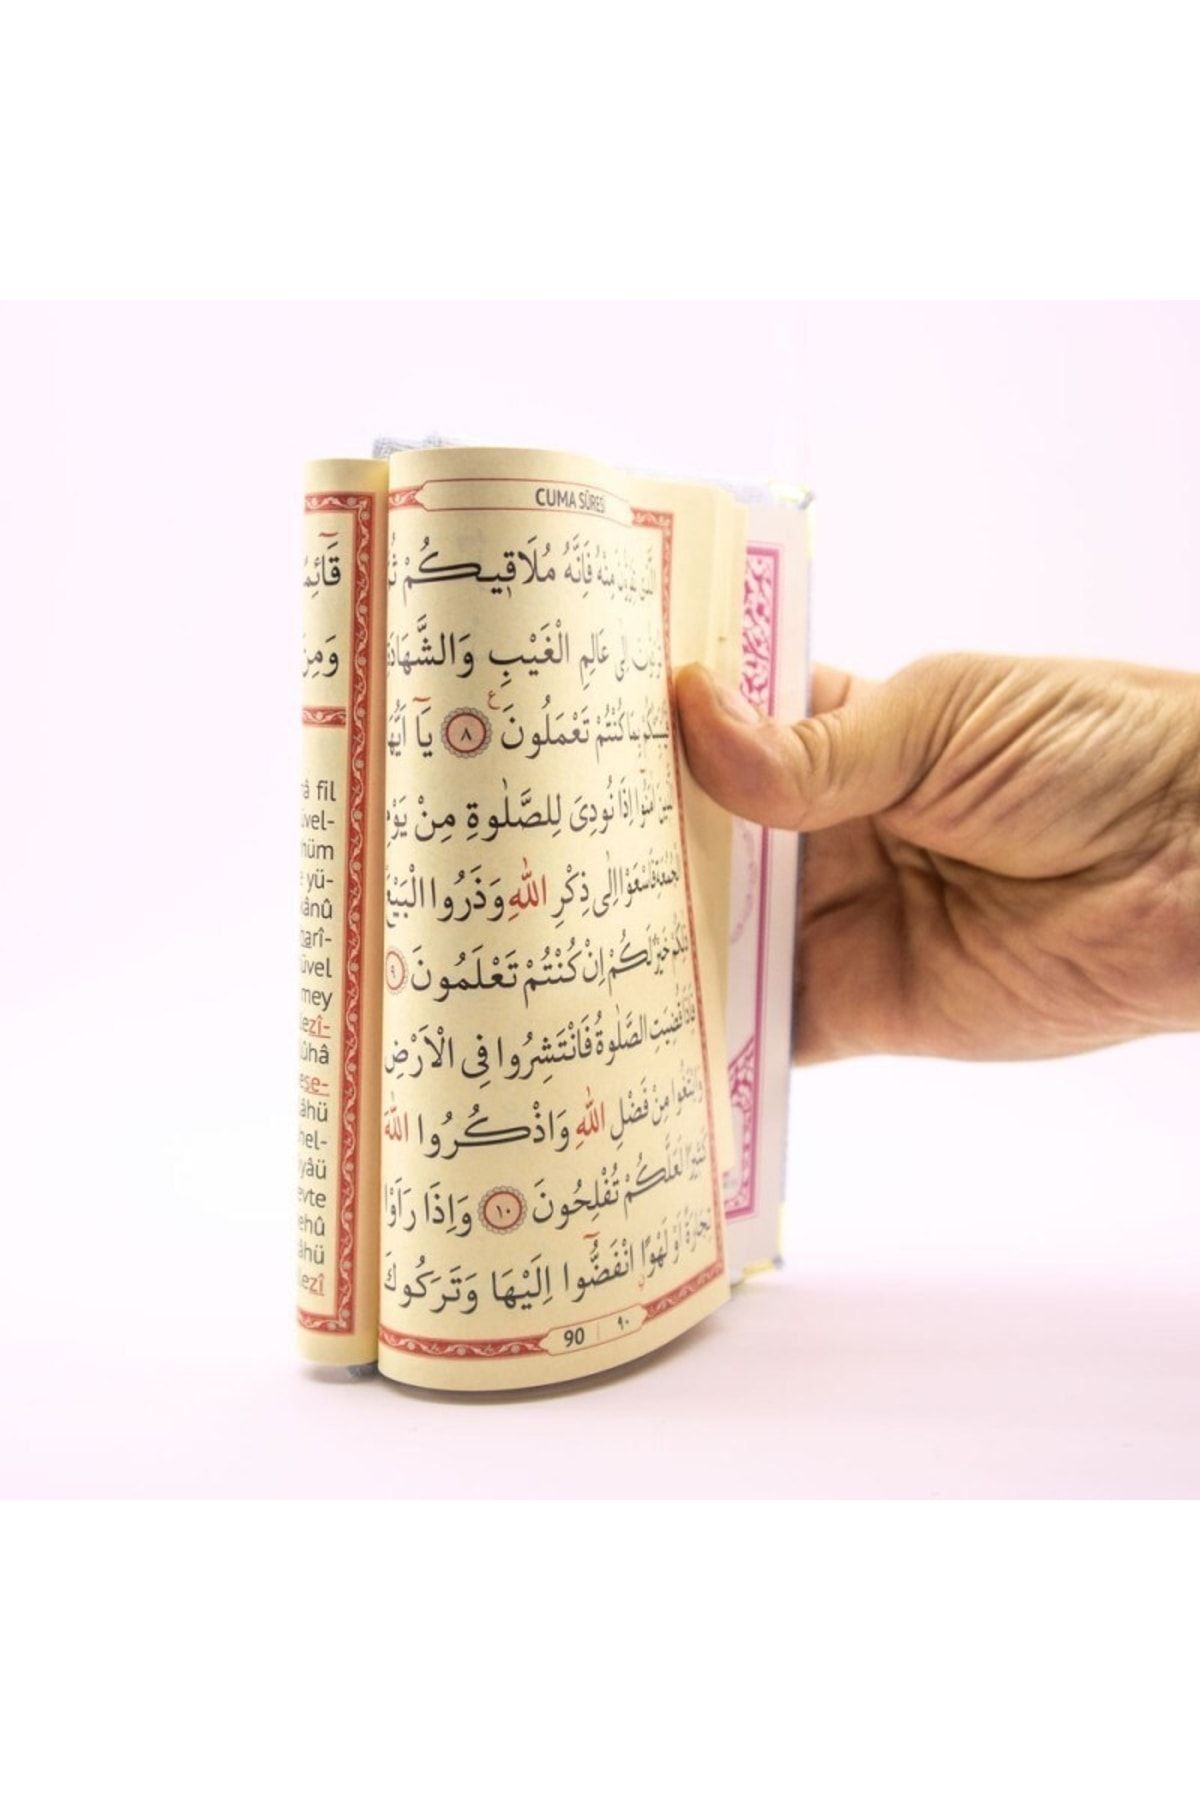 قَائِمً
وَمِنَ
â fil
üvel-
hüm
e yü-
kânû
narî-
üvel
mey
ezî-
ûhâ
ese-
âhü
nel-
yâü
evte
ehû
âhü
lezî
CUMA SÛRESİ
مِنْهُ فَاِنَّهُ مُلَاق۪يكُمْ ثُ
اِلٰى عَالِمِ الْغَيْبِ وَالشَّهَادَةِ
بِمَا كُنْتُمْ تَعْمَلُونَ ع ٨ يَٓا اَيُّهَا
اٰمَنُٓوا اِذَا نُودِيَ لِلصَّلٰوةِ مِنْ يَوْمِ
الْجُمُعَةِ فَاسْعَوْا اِلٰى ذِكْرِ اللّٰهِ وَذَرُوا الْبَيْعَ
ذٰلِكُمْ خَيْرٌ لَكُمْ اِنْ كُنْتُمْ تَعْلَمُونَ ٩
فَاِذَا قُضِيَتِ الصَّلٰوةُ فَانْتَشِرُوا فِي الْاَرْضِ
وَابْتَغُوا مِنْ فَضْلِ اللّٰهِ وَاذْكُرُوا اللّٰهَ
كَث۪يرًا لَعَلَّكُمْ تُفْلِحُونَ ١٠ وَاِذَا رَاَوْا
تِجَارَةً اَوْ لَهْوًا انْفَضُّٓوا اِلَيْهَا وَتَرَكُوكَ
90 | ٩٠